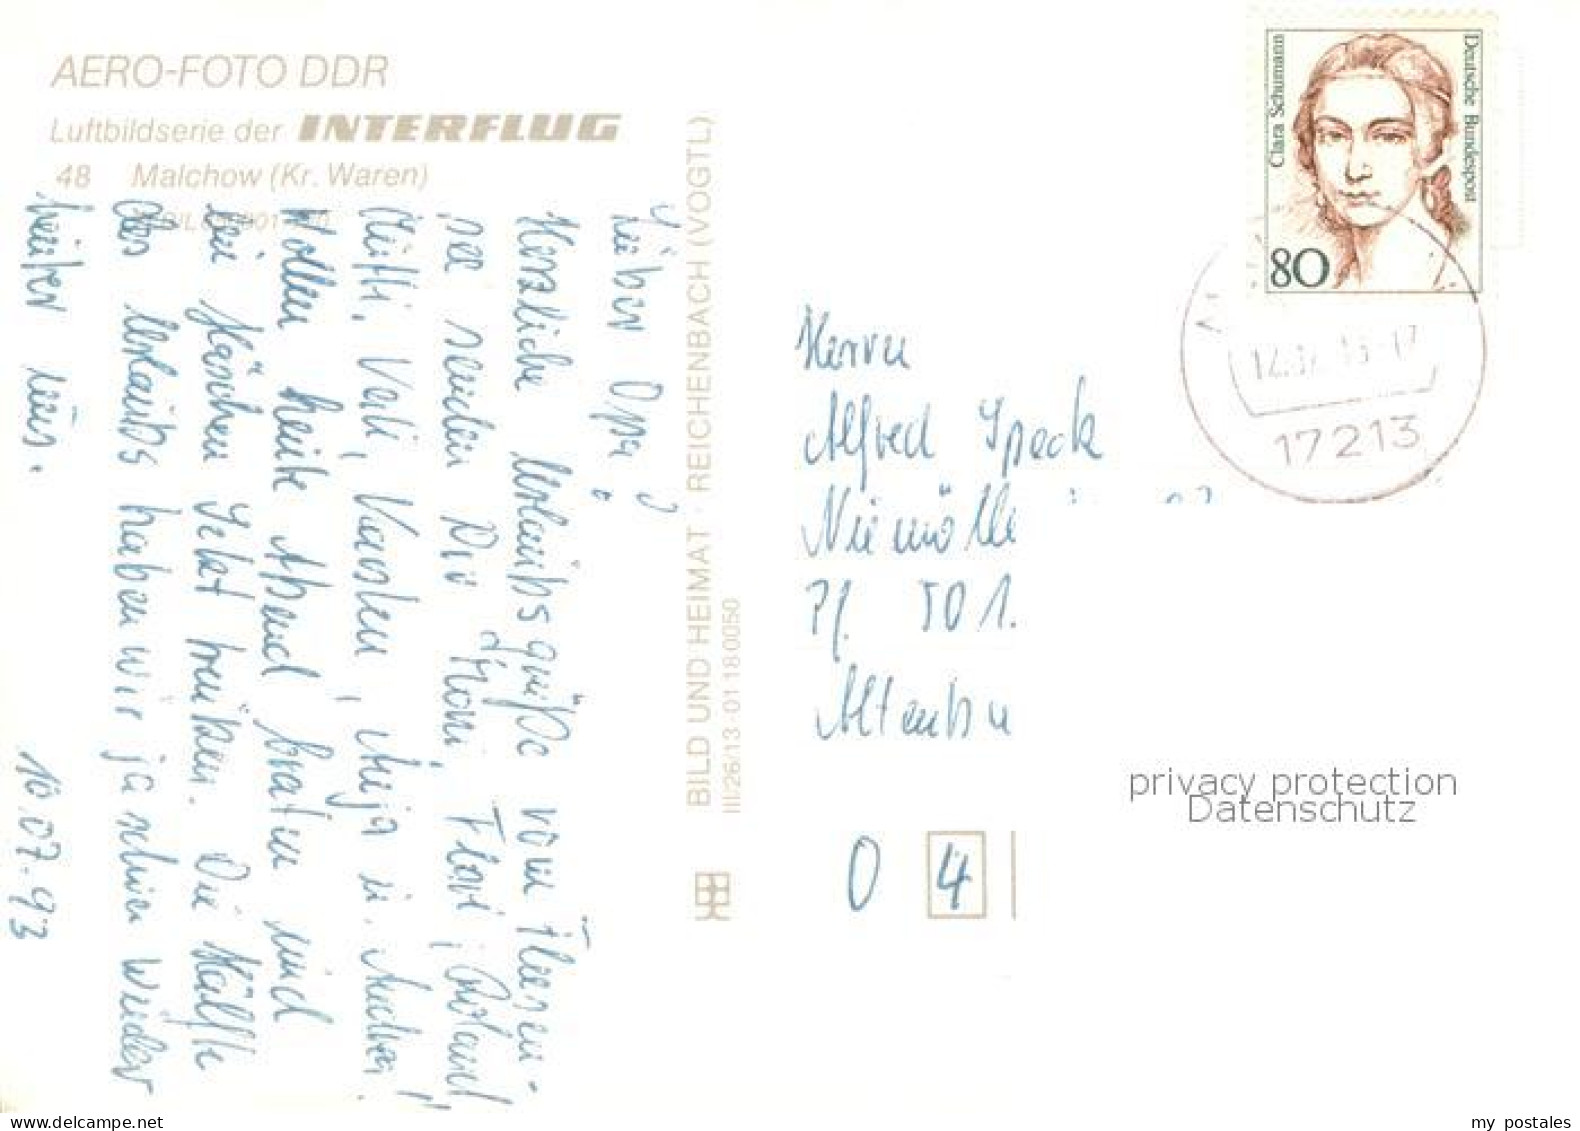 AERO-FOTO DDR
Luftbildserie der INTERFLUG
48 Malchow (Kr. Waren)
Lieber Opa!
Herzliche Urlaubsgrüße vom Fleesen-
see senden Dir Moni, Flori,
Mutti, Vati, Karsten, u.
Wollen heute Abend braten und
ein Gläschen Sekt trinken. Die Hälfte
des Urlaubs haben wir ja schon wieder
hinter uns.
10.07.93
BILD UND HEIMAT · REICHENBACH (VOGTL)
III/26/13-01 18 0050
Clara Schumann
Deutsche Bundespost
80
17213
Herrn
Alfred Speck
Niemölle
Pf. 501.
Altenbu
O 4
privacy protection
Datenschutz
my postales